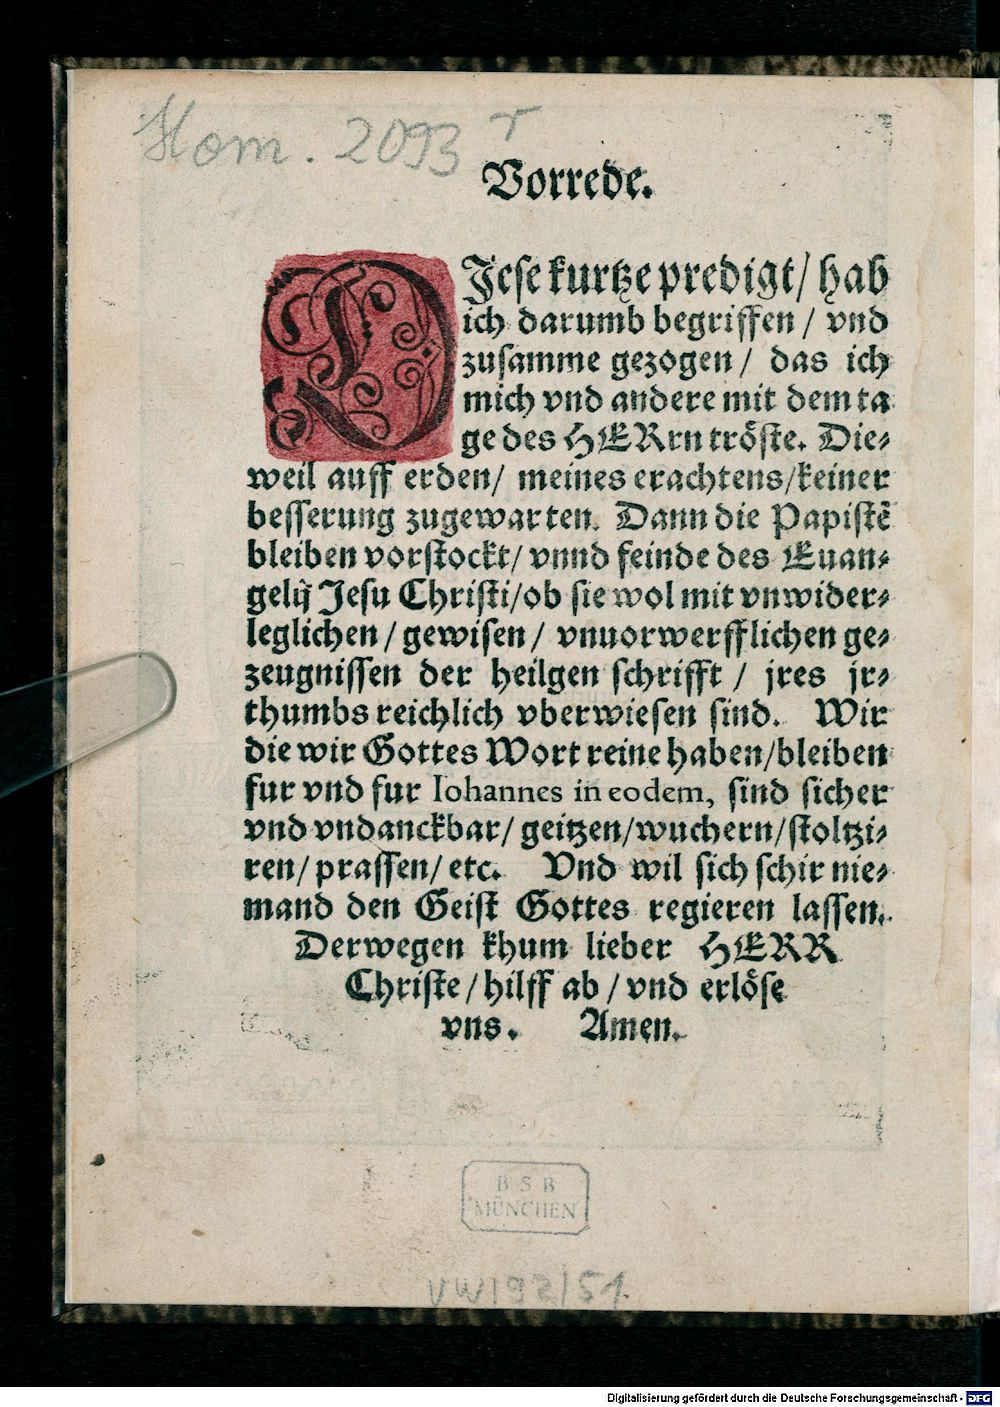 Hom. 2093 r
Vorrede.
DJese kurtze predigt / hab
ich darumb begriffen / vnd
zusamme gezogen / das ich
mich vnd andere mit dem ta
ge des HERrn tröste. Die⸗
weil auff erden / meines erachtens / keiner
besserung zugewarten. Dann die Papistē
bleiben vorstockt / vnnd feinde des Euan⸗
gelij Jesu Christi / ob sie wol mit vnwider⸗
leglichen / gewisen / vnuorwerfflichen ge⸗
zeugnissen der heilgen schrifft / jres jr⸗
thumbs reichlich vberwiesen sind. Wir
die wir Gottes Wort reine haben / bleiben
fur vnd fur Iohannes in eodem, sind sicher
vnd vndanckbar / geitzen / wuchern / stoltzi⸗
ren / prassen / etc. Vnd wil sich schir nie⸗
mand den Geist Gottes regieren lassen.
Derwegen khum lieber HERR
Christe / hilff ab / vnd erlöse
vns. Amen.
BSB
MÜNCHEN
VW193/51
Digitalisierung gefördert durch die Deutsche Forschungsgemeinschaft - DFG